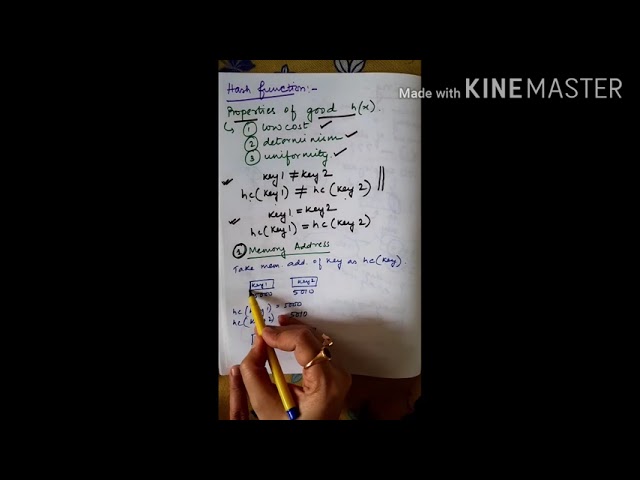 Made with KINEMASTER
Hash function:-
Properties of good h(x).
① low cost ✓
② determinism ✓
③ uniformity ✓
key1 ≠ key2
hc(key1) ≠ hc(key2)
key1 = key2
hc(key1) = hc(key2)
① Memory Address
Take mem. add. of key as hc(key).
key1 key2
5000 5010
hc(key1) = 5000
hc(key2) 5010